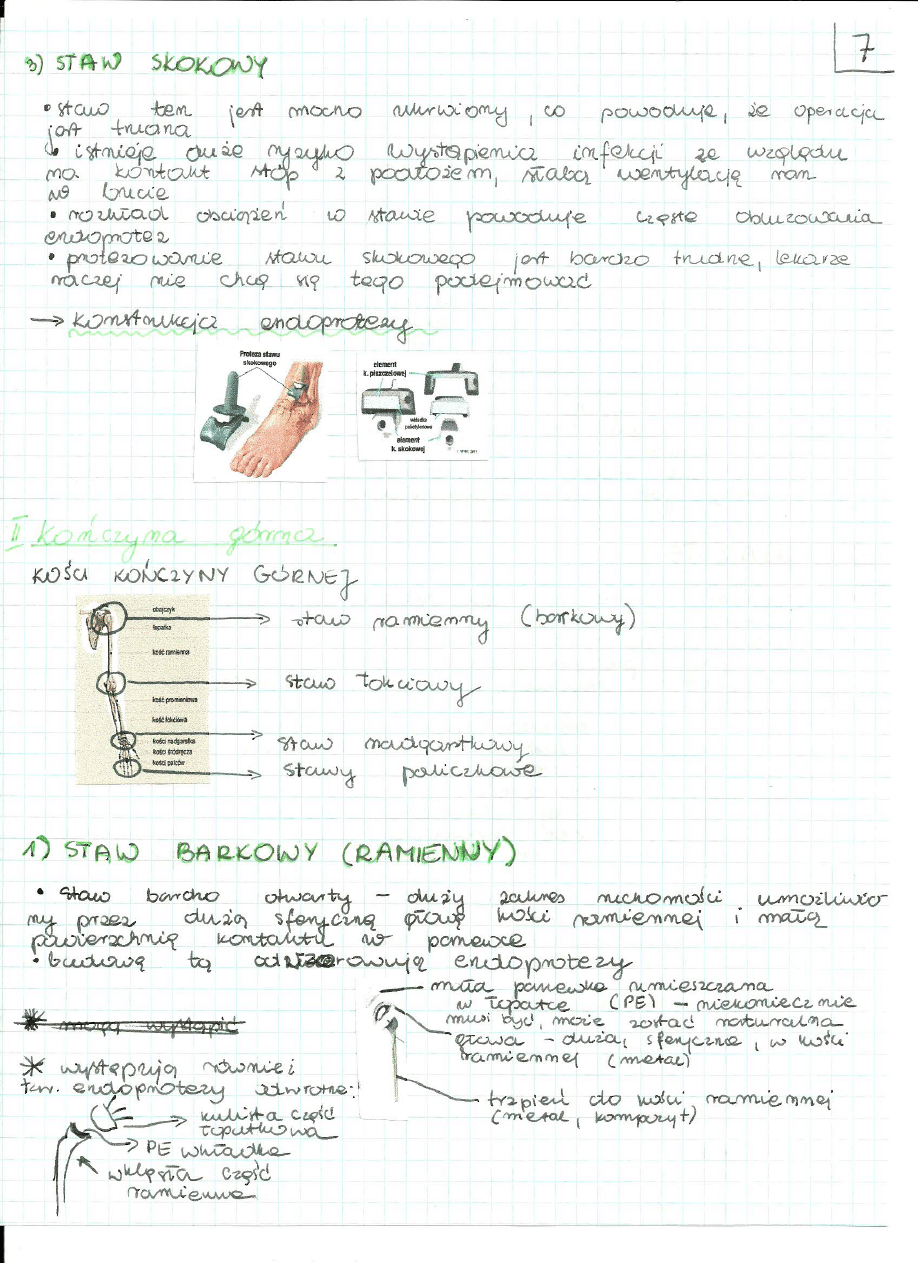 7
3) STAW SKOKOWY
• staw ten jest mocno ukrwiony, co powoduje, że operacja
jest trudna
↳ istnieje duże ryzyko wystąpienia infekcji ze względu
na kontakt stóp z podłożem, słabą wentylację ran
w bucie
• rozkład obciążeń w stawie powoduje częste obluzowania
endoprotez
• protezowanie stawu skokowego jest bardzo trudne, lekarze
raczej nie chcą się tego podejmować
→ konstrukcja endoprotezy
Proteza stawu
skokowego
element
k. piszczelowej
wkładka
polietylenowa
element
k. skokowej
II Kończyna górna
KOŚCI KOŃCZYNY GÓRNEJ
obojczyk
łopatka
kość ramienna
kość promieniowa
kość łokciowa
kości nadgarstka
kości śródręcza
kości palców
staw ramienny (barkowy)
staw łokciowy
staw nadgarstkowy
stawy paliczkowe
1) STAW BARKOWY (RAMIENNY)
• staw bardzo otwarty – duży zakres ruchomości umożliwio
ny przez dużą sferyczną głowę kości ramiennej i małą
powierzchnię kontaktu w panewce
• budowę tą odwzorowują endoprotezy
mała panewka umieszczana
w łopatce (PE) – niekoniecznie
musi być, może zostać naturalna
głowa – duża, sferyczna, w kości
ramiennej (metal)
trzpień do kości ramiennej
(metal, kompozyt)
* mogą wystąpić
* występują również
tzw. endoprotezy odwrotne:
kulista część
łopatkowa
PE wkładka
wklęsła część
ramienna